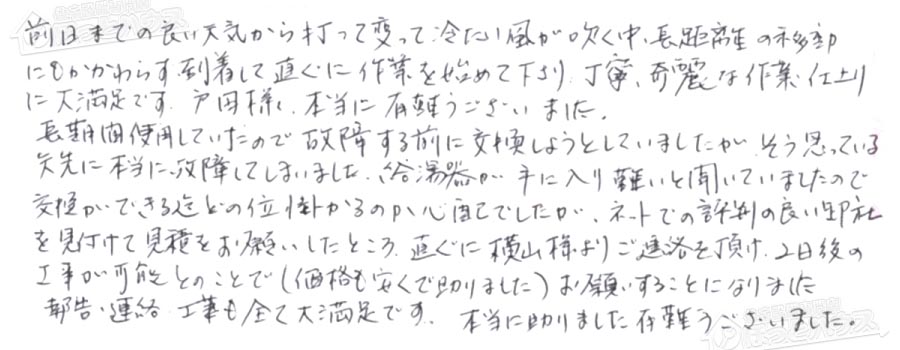 前日までの良い天気から打って変って冷たい風が吹く中、長距離の移動
にもかかわらず到着して直ぐに作業を始めて下さり、丁寧、奇麗な作業、仕上り
に大満足です。戸田様、本当に有難うございました。
長期間使用していたので故障する前に交換しようとしていましたが、そう思っている
矢先に本当に故障してしまいました。給湯器が手に入り難いと聞いていましたので
交換ができる迄どの位掛かるのか心配でしたが、ネットでの評判の良い御社
を見付けて見積をお願いしたところ、直ぐに横山様よりご連絡を頂け、2日後の
工事が可能とのことで(価格も安くて助りました)お願いすることになりました
報告・連絡・工事も全て大満足です。本当に助りました有難うございました。